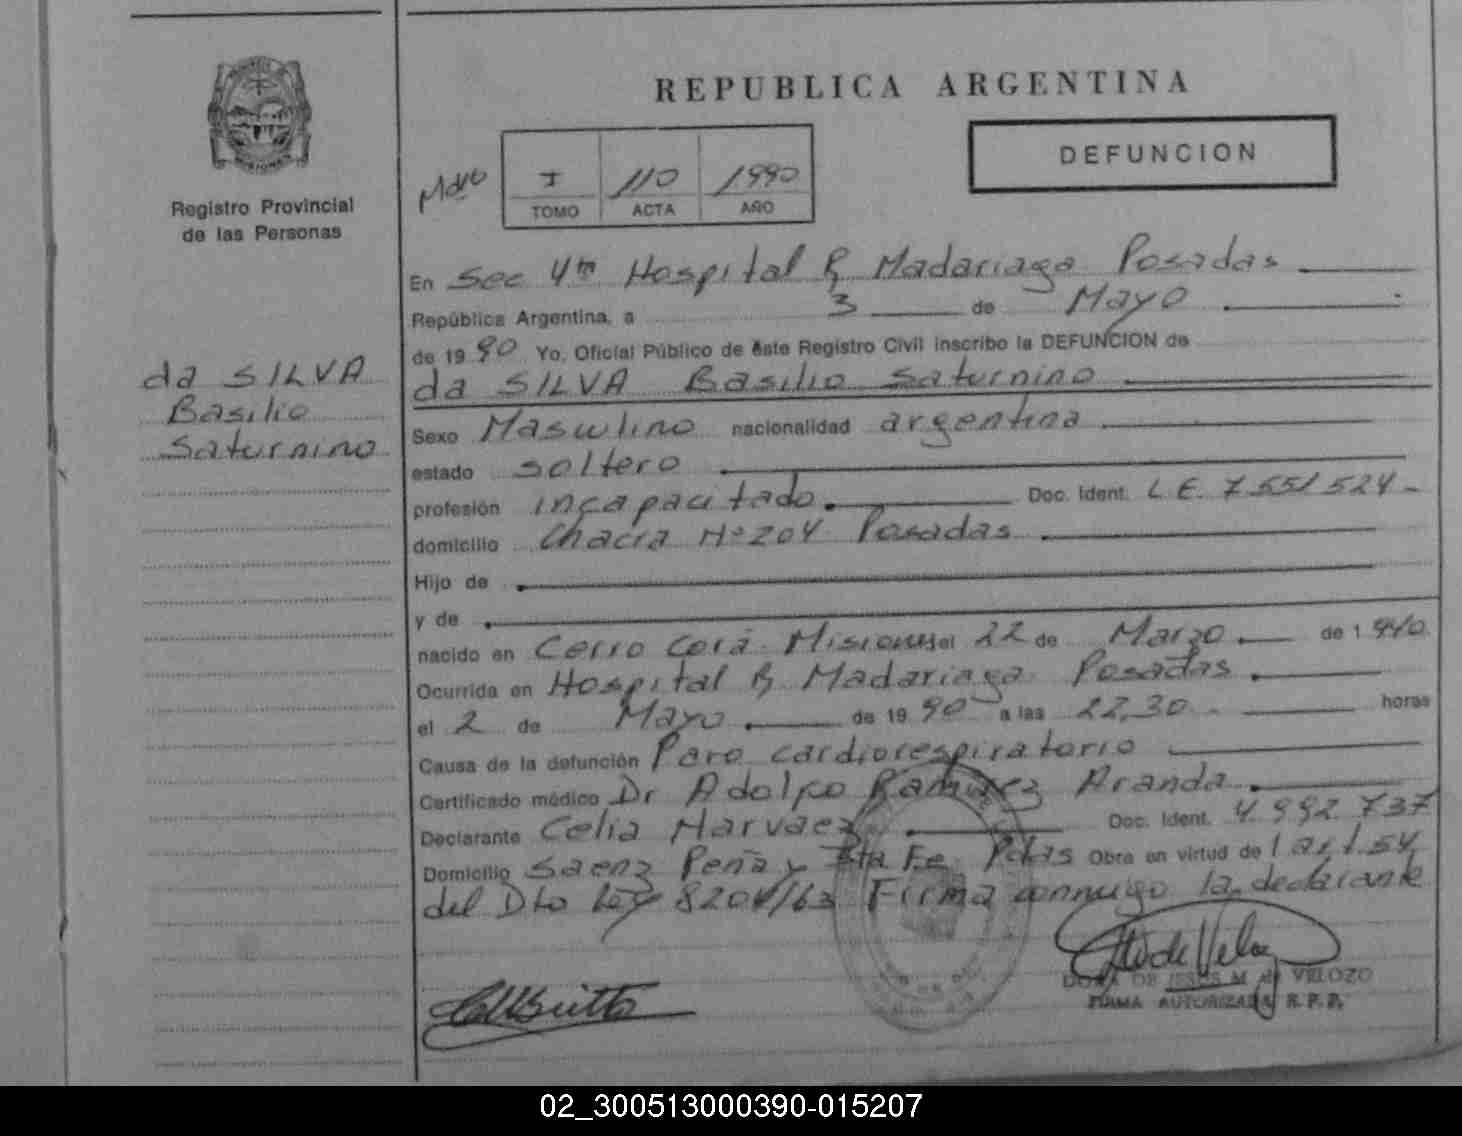 REPUBLICA ARGENTINA
DEFUNCION
Registro Provincial
de las Personas
I 110 1990
TOMO ACTA AÑO
da SILVA
Basilio
Saturnino
En Sec 4ta Hospital R Madariaga Posadas
República Argentina, a 3 de Mayo
de 1990 Yo, Oficial Público de éste Registro Civil inscribo la DEFUNCION de
da SILVA Basilio Saturnino
Sexo Masculino nacionalidad argentina
estado soltero
profesión incapacitado. Doc. Ident. L E. 7.551.524-
domicilio Chacra Nº 204 Posadas
Hijo de
y de
nacido en Cerro Corá Misiones el 22 de Marzo de 1940
Ocurrida en Hospital R Madariaga Posadas
el 2 de Mayo de 1990 a las 22,30 horas
Causa de la defunción Paro cardiorespiratorio
Certificado médico Dr Adolfo Ramirez Aranda
Declarante Celia Narvaez Doc. Ident. 4.992.737
Domicilio Saenz Peña y Sta Fe. Pdas Obra en virtud de l art. 54
del Dto Ley 8204/63 Firma conmigo la declarante
DORA DE JESUS M de VELOZO
FIRMA AUTORIZADA R. P. P.
02_300513000390-015207